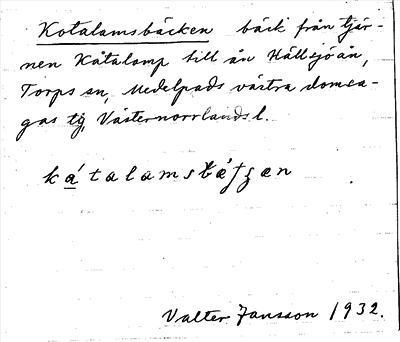 Kotalamsbäcken bäck från tjär-
nen Kåtalamp till ån Hällsjöån,
Torps sn, Medelpads västra domsa-
gas tg, Västernorrlands l.
Valter Jansson 1932.